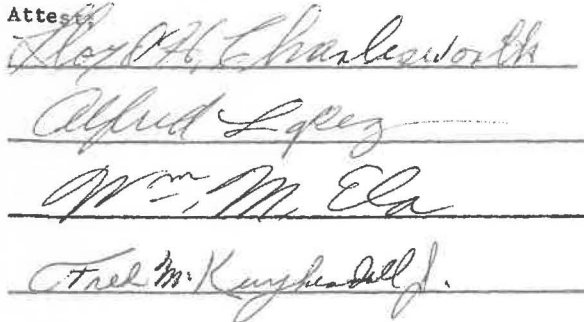 Attest:
Lloyd H. Charlesworth
Alfred Lopez
Wm. M. Ela
Fred M. Kuykendall Jr.